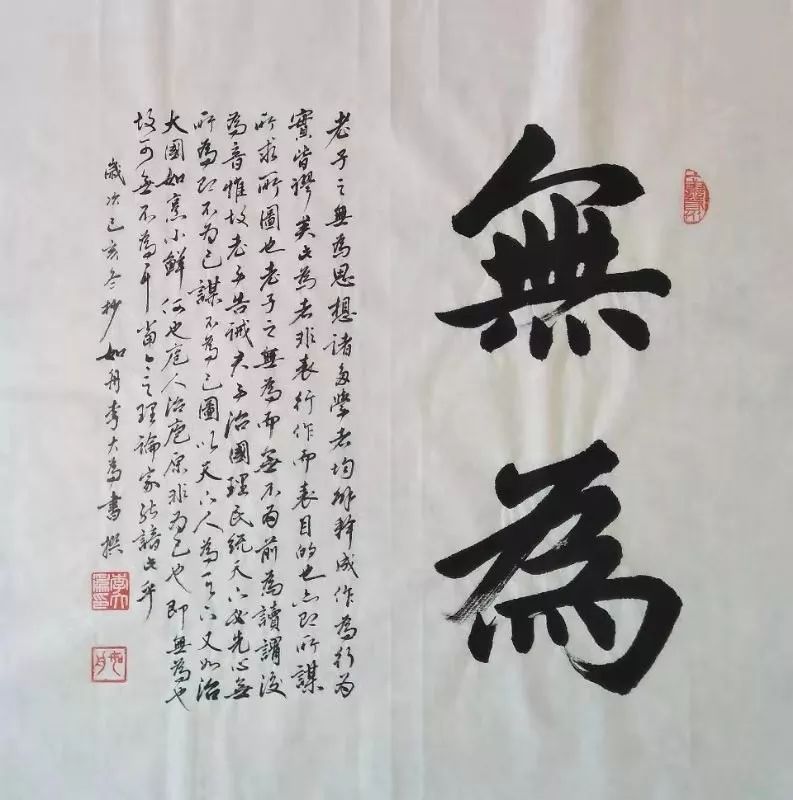 無為
老子之無為思想諸多學者均解釋成作為行為
實皆謬矣此為者非表行作而表目的也亦即所謀
所求所圖也老子之無為而無不為前為讀謂後
為音惟故老子告誡君子治國理民統天下必先心無
所為即不為己謀不為己圖以天下人為天下又如治
大國如烹小鮮何也庖人治庖原非為己也即無為也
故可無不為耳當今之理論家能諳此乎
歲次己亥冬抄如舟李大為書撰